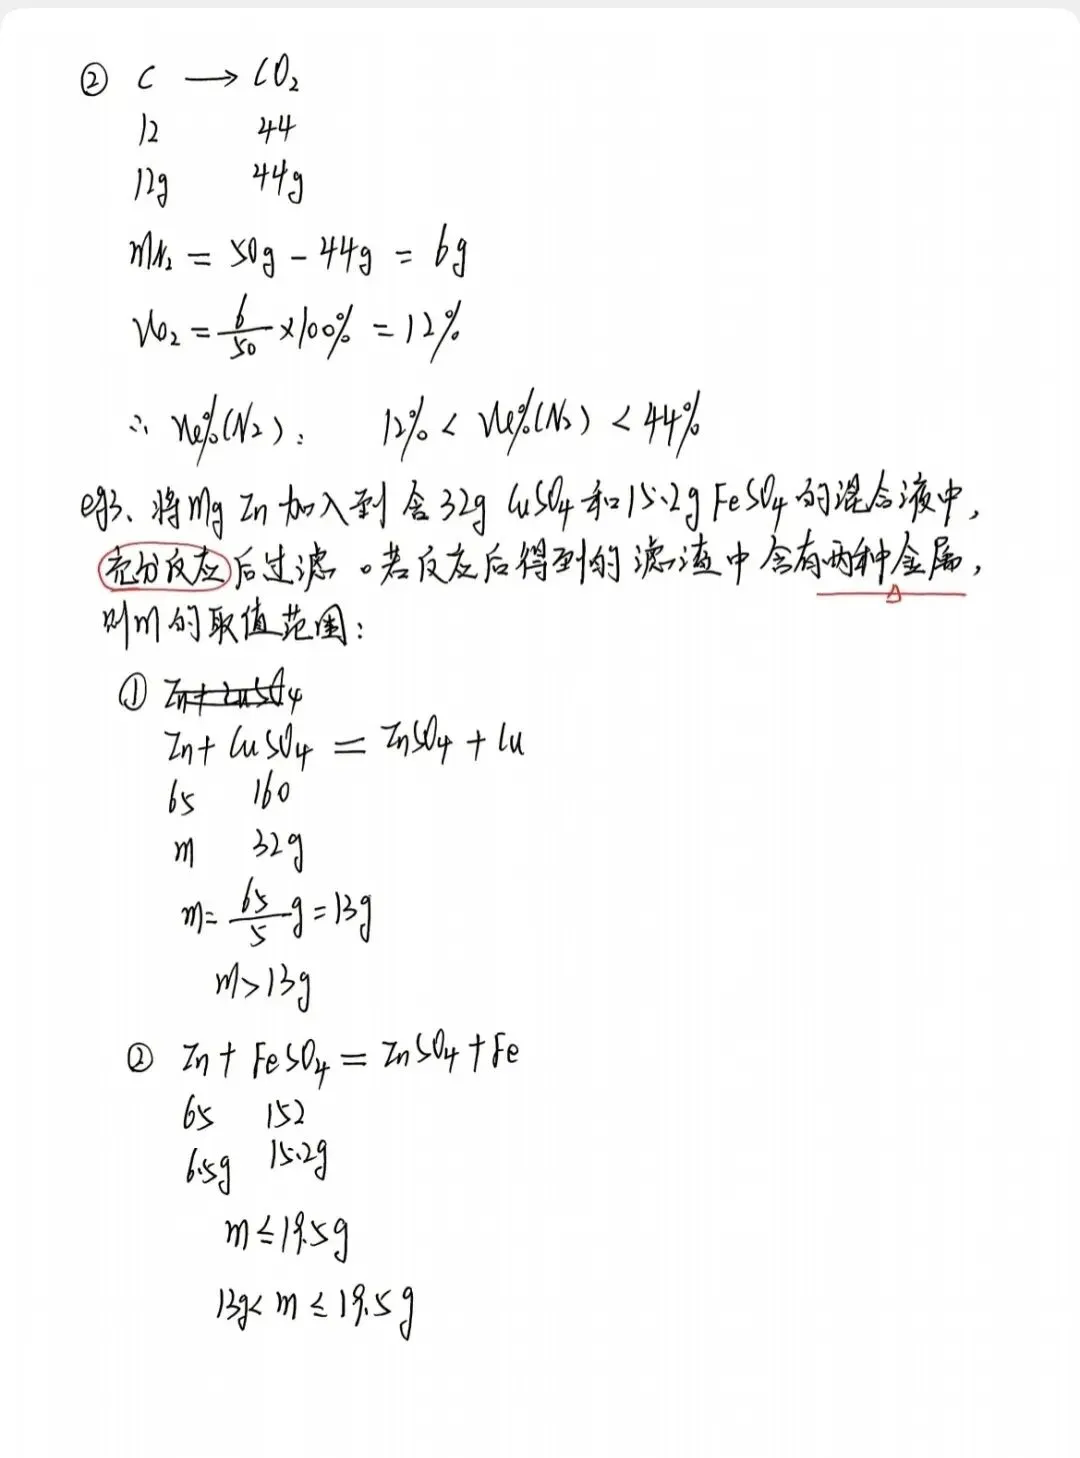 ② C → CO₂
12 44
12g 44g
mN₂ = 50g - 44g = 6g
= 6/50 ×100% = 12%
∴ (N₂): 12% < (N₂) < 44%
eg3、将mg Zn加入到含32g CuSO₄和15.2g FeSO₄的混合液中,
充分反应后过滤。若反应后得到的滤渣中含有两种金属,
则m的取值范围:
① Zn+CuSO₄
Zn+CuSO₄ = ZnSO₄+Cu
65 160
m 32g
m=65/5 g=13g
m>13g
② Zn+FeSO₄=ZnSO₄+Fe
65 152
6.5g 15.2g
m≤19.5g
13g<m≤19.5g